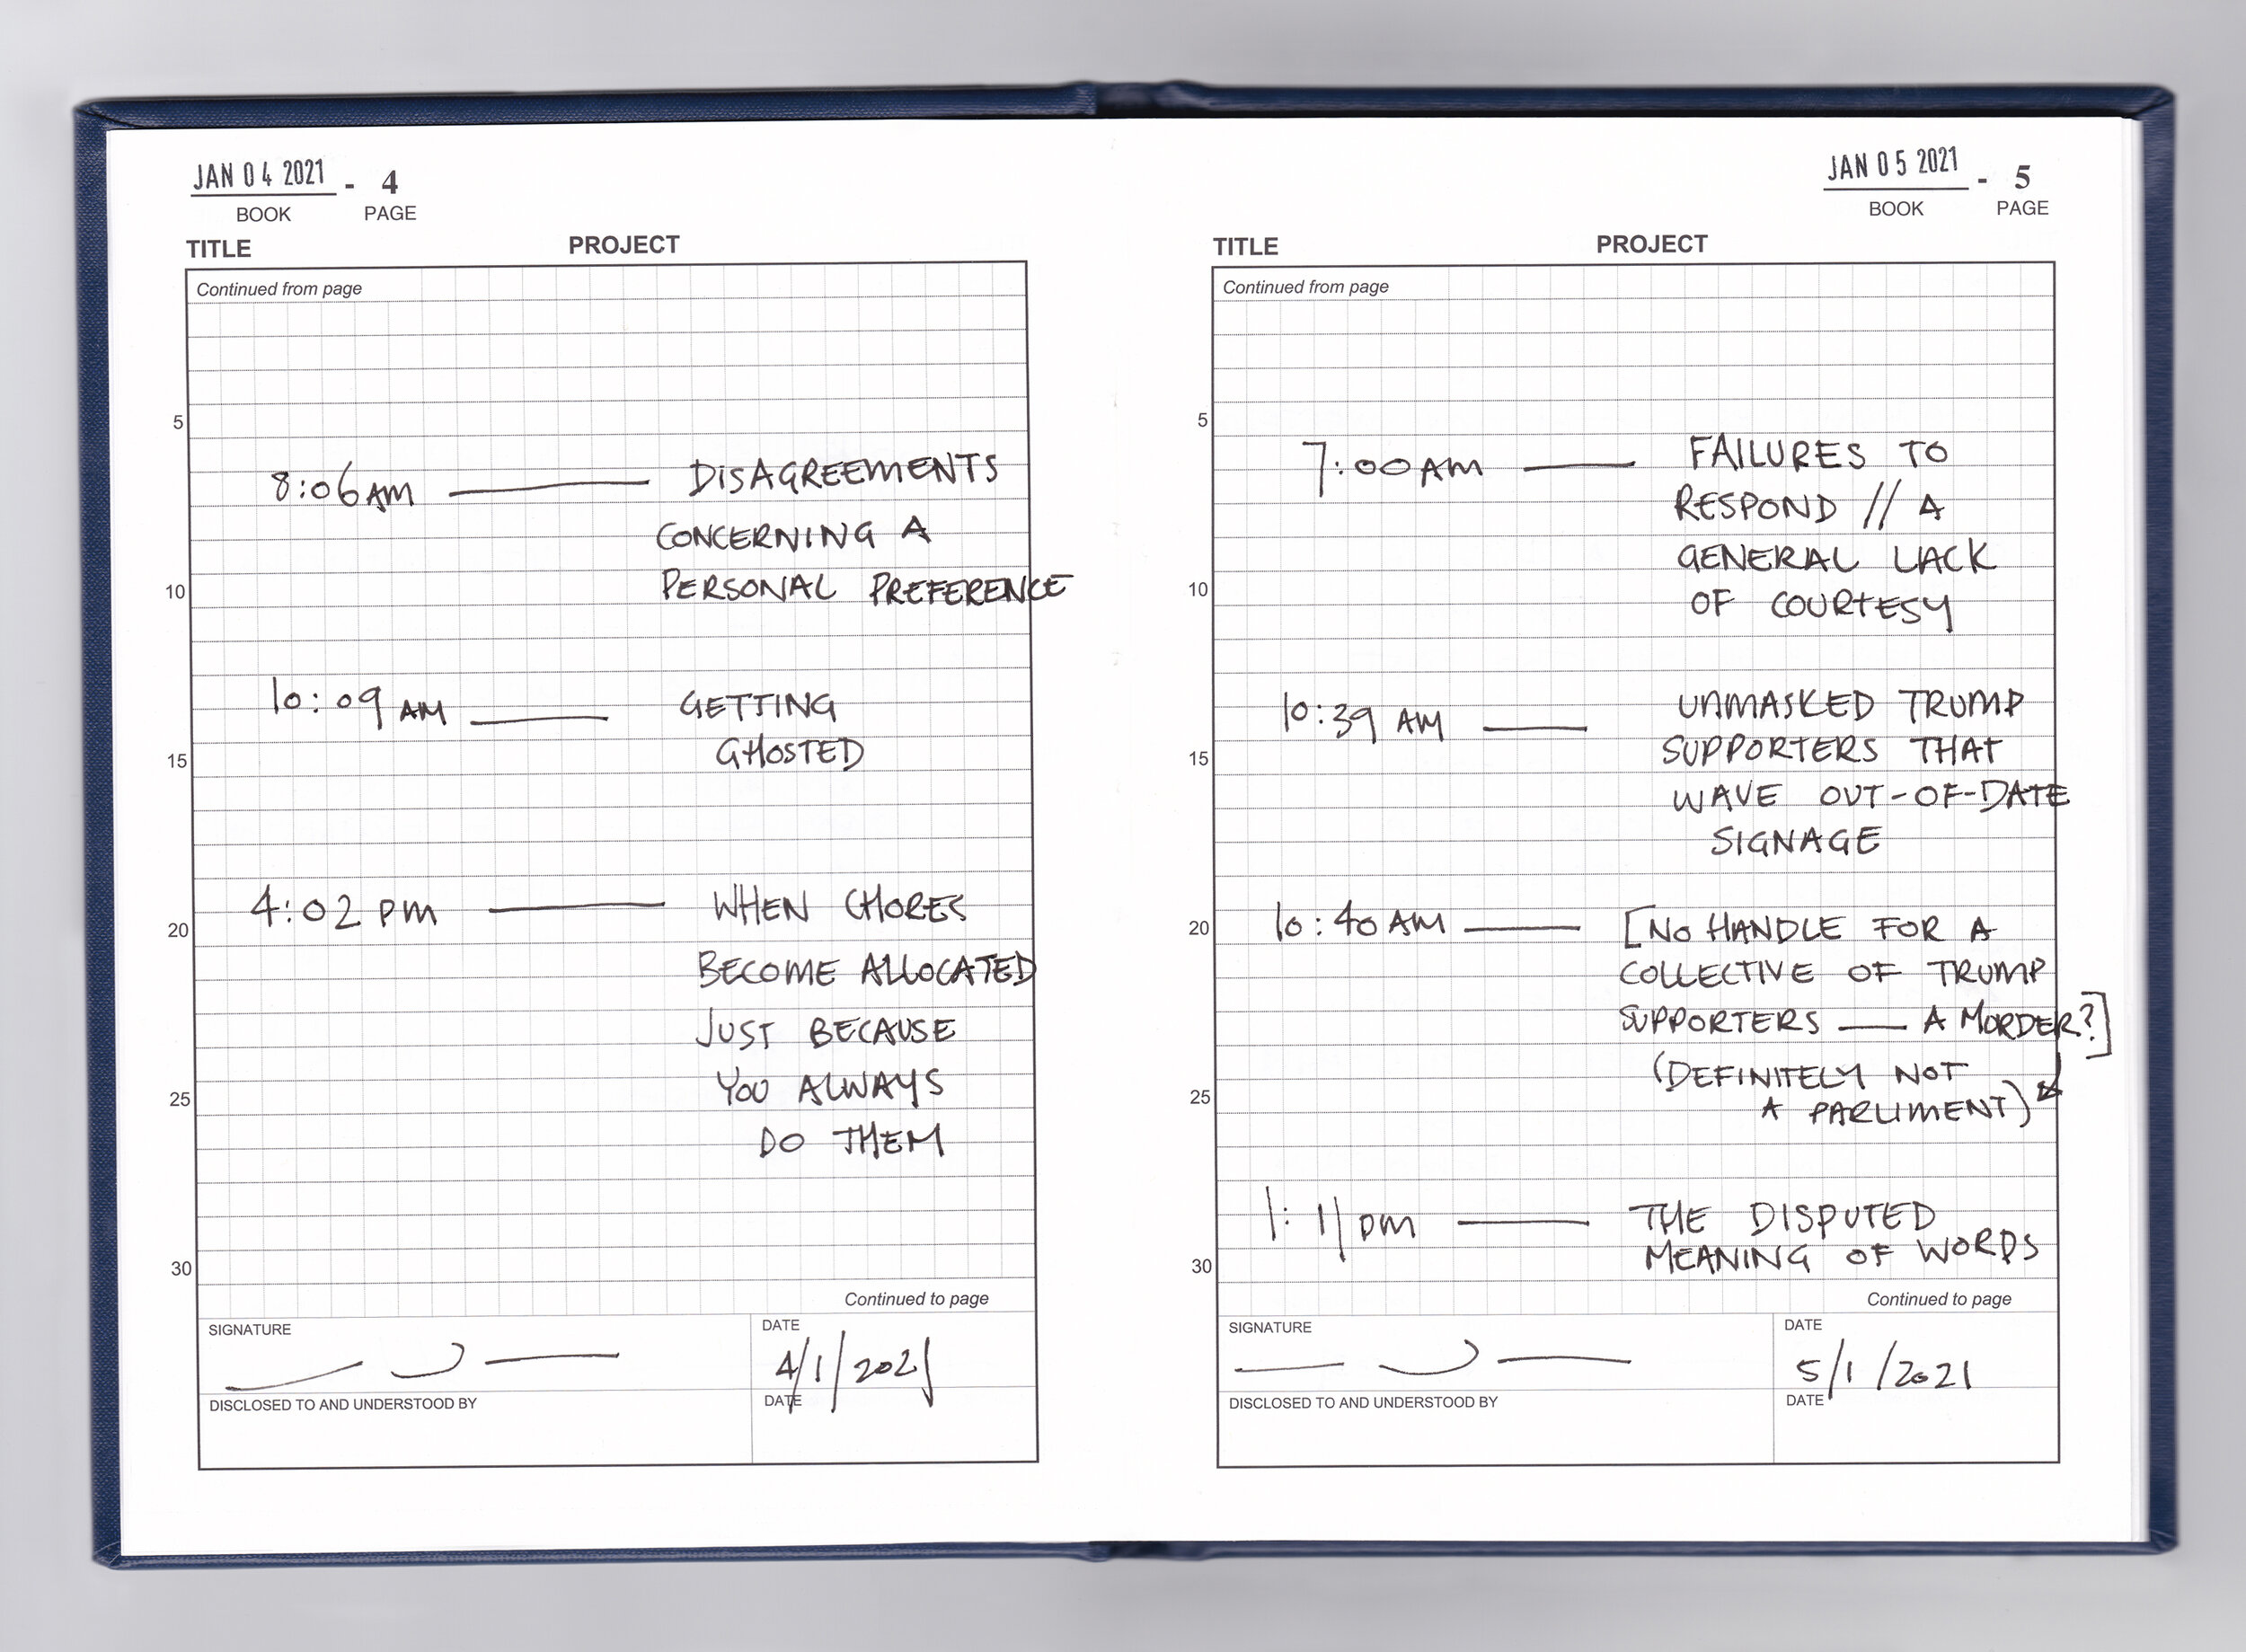 JAN 04 2021 - 4
BOOK PAGE
TITLE PROJECT
Continued from page
5
8:06 AM — DISAGREEMENTS
CONCERNING A
10 PERSONAL PREFERENCE
10:09 AM — GETTING
15 GHOSTED
4:02 PM — WHEN CHORES
20
BECOME ALLOCATED
JUST BECAUSE
25 YOU ALWAYS
DO THEM
30
Continued to page
SIGNATURE DATE
4/1/2021
DISCLOSED TO AND UNDERSTOOD BY DATE
JAN 05 2021 - 5
BOOK PAGE
TITLE PROJECT
Continued from page
5
7:00 AM — FAILURES TO
RESPOND // A
GENERAL LACK
10 OF COURTESY
10:39 AM — UNMASKED TRUMP
15 SUPPORTERS THAT
WAVE OUT-OF-DATE
SIGNAGE
20 10:40 AM — [NO HANDLE FOR A
COLLECTIVE OF TRUMP
SUPPORTERS — A MORDER?]
(DEFINITELY NOT
25 A PARLIMENT)
1:11 PM — THE DISPUTED
30 MEANING OF WORDS
Continued to page
SIGNATURE DATE
5/1/2021
DISCLOSED TO AND UNDERSTOOD BY DATE